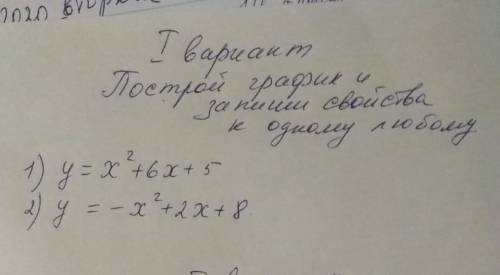 2020
I вариант
Построй график и
запиши свойства
к одному любому
1) y = x²+6x+5
2) y = -x²+2x+8